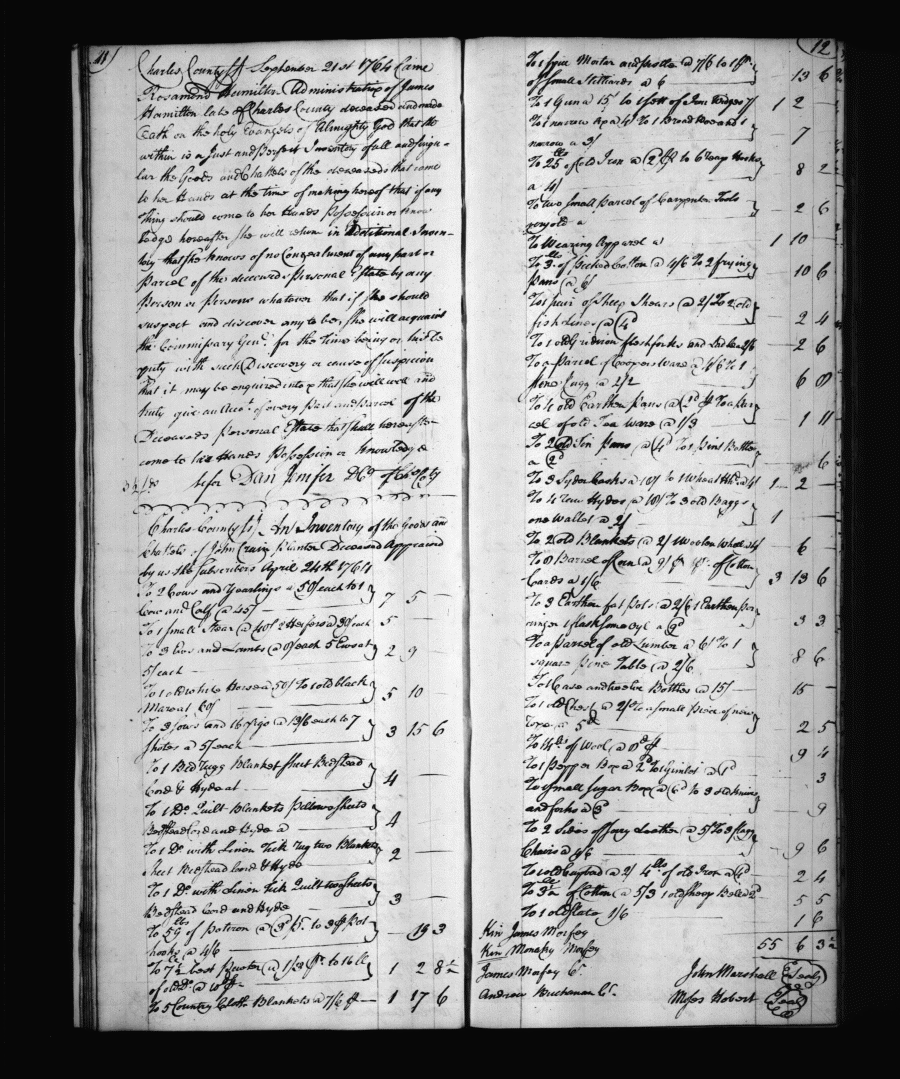 11
Charles County Ss September 21st 1764 Came
Rosamond Hamilton Administratrix of James
Hamilton late of Charles County deceased and made
Oath on the holy Evangels of Almighty God that the
within is a Just and Perfect Inventory of all and singu-
lar the Goods and Chattels of the deceaseds that came
to her Hands at the time of making hereof that if any
thing should come to her Hands Possession or Know
ledge hereafter she will return in Additional Inven-
tory that she knows of no Concealment of any part or
Parcel of the deceaseds Personal Estate by any
Person or Persons whatever that if she should
suspect and discover any to be, she will acquaint
the Commissary Genl. for the Time being or his De
puty with such Discovery or cause of Suspicion
that it may be enquired into & that she will well and
truly give an Acct. of every Part and Parcel of the
Deceaseds Personal Estate that shall hereafter
come to her Hands Possession or Knowledge
before Dan Jenifer DC of Co
Charles County Ss An Inventory of the Goods and
Chattels of John Crain Planter Deceased Appraised
by us the Subscribers April 24th 1764
To 2 Cows and Yearlings a 50/ each to 1
Cow and Calf @ 45/ 7 5 —
To 1 small Steer @ 40/ 2 Heifers @ 30/ each 5 —
To 3 Ews and Lambs @ 8/ each 5 Ews at
5/ each 2 9 —
To 1 old white Horse a 50/ To 1 old black
Mare at 60/ 5 10 —
To 3 Sows and 16 Pigs @ 13/6 each to 7
Shotes a 5/ each 3 15 6
To 1 Bed Rugg Blanket Sheet Bedstead
Cord & Hyde at 4 —
To 1 Do. Quilt Blankets Pillows Sheets
Bedstead Cord and Hyde a 4
To 1 Do. with Linon Tick Rug two Blankets
Sheet Bedstead Cord & Hyde 2 —
To 1 Do. with Linon Tick Quilt two Sheets
Bedstead Cord and Hyde 3 —
To 59 lbs of Potiron @ 3d P. to 3 Pot
hooks @ 4/6 19 3
To 7½ lb best Pewter @ 1/3 P. to 16 lb
of old Do. @ 10d P 1 2 8½
To 5 Country Cloth Blankets a 7/6 P 1 17 6
12
To 1 Spice Mortar and Pestle @ 7/6 to 1 Pr.
of small Stilliards a 6 13 6
To 1 Gun a 15/ to 1 Sett of Iron Wedges 7/ 1 2
To 1 narrow Ax a 4/ To 1 Broad Hoe and 1
narrow a 3/ 7
To 25 lbs of old Iron @ 2d P to 6 Reap Hooks
a 4/ 8 2
To two small Parcel of Carpenters Tools
very old a 2 6
To Wearing Apparel a 1 10
To 3 lb of Picked Cotton @ 1/6 To 2 frying
Pans @ 6/ 10 6
To 1 pair of Sheep Shears @ 2/ To 2 old
fish Lines @ 4d 2 4
To 1 old Gridiron flesh forks and Ladle a 2/6 2 6
To a Parcel of Coopers Ware @ 4/6 To 1
Stone Jugg @ 2/2 6 8
To 4 old Earthen Pans @ 2d P To a Par
cel of old Tea Ware @ 1/3 1 11
To 2 Old Tin Pans @ 4d To 1 Pint Bottle
a 2d 6
To 3 Syder Casks @ 10/ to 1 Wheat Hhd. @ 2/ 1 2 —
To 4 Raw Hydes @ 10/ To 3 old Baggs
one Wallet @ 2/ 1 —
To 2 old Blankets @ 2/ Woolen Wheel at 4/ 6 —
To 8 Barrel of Corn @ 9/ P Pr. of Cotton
Cards a 1/6 3 13 6
To 3 Earthen fat Pots @ 2/6 1 Earthen Por
ringer 1 flask some Oyl a 9d 3 3
To a Parcel of old Lumber a 6/ To 1
square Pine Table @ 2/6 8 6
To 1 Case and twelve Bottles @ 15/ 15 —
To 1 old Chest @ 2/ To a small Piece of new
Rope a 5d 2 5
To 14 lb of Wool @ 8d P 9 4
To 1 Pepper Box a 2d To 1 Gimlet @ 1d 3
To 1 small Sugar Box @ 6d to 3 old Knives
and forks a 3d 9
To 2 Sides of Tary Leather @ 5/ To 3 flagg
Chairs a 4/6 9 6
To 1 old Raypad @ 2/ 4 lbs of old Iron a 4d 2 4
To 3½ lb of Cotton @ 5/3 1 old Sheep Bell a 2d 5 5
To 1 old State 1/6 1 6
55 6 3½
Kin James Morfey
Kin Monaky Morfey
James Morfey Cr. John Marshall Seal
Andrew Buchanan Cr. Moses Hobert Seal